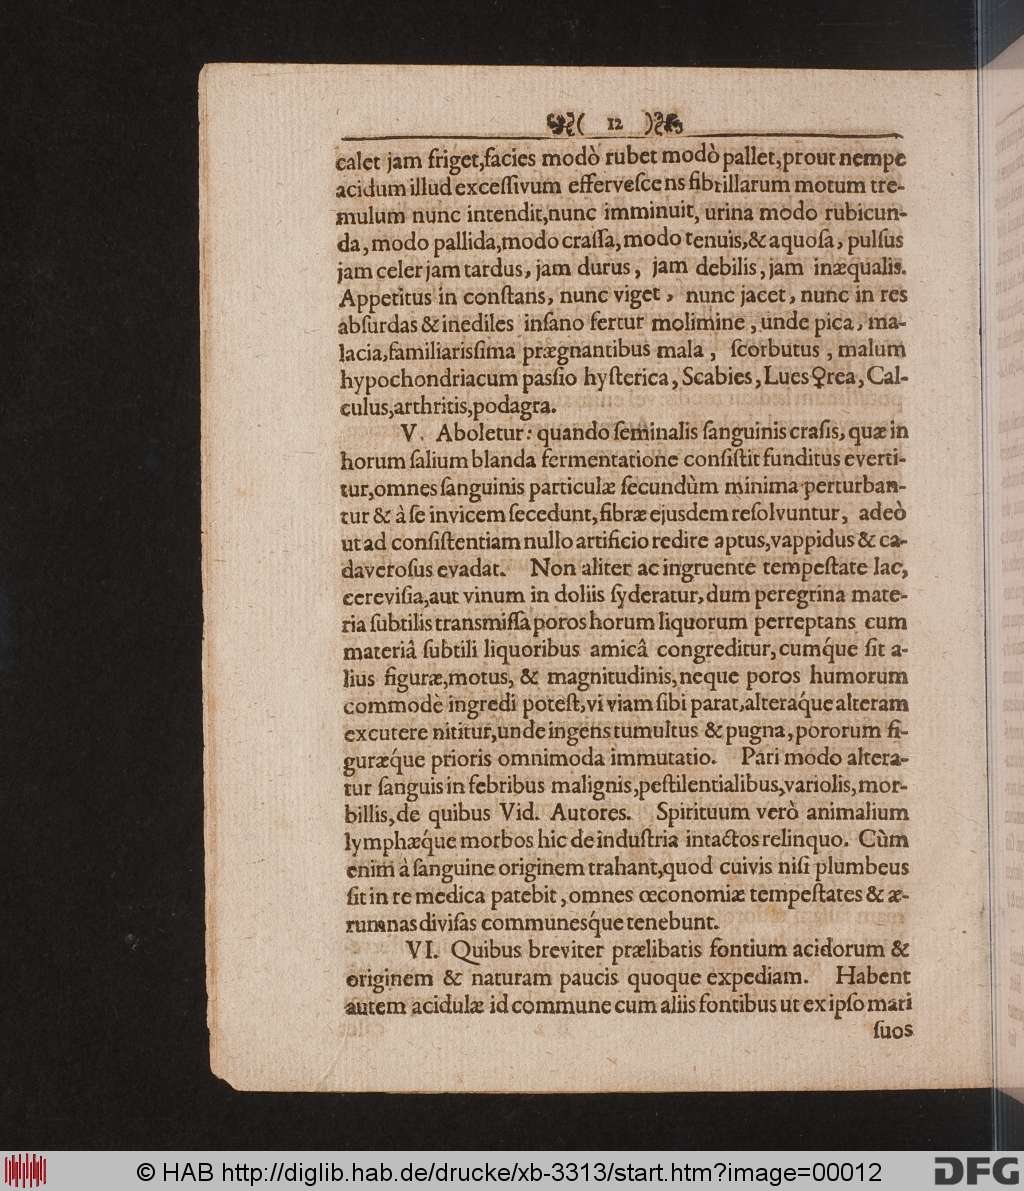 ( 12 )
calet jam friget,facies modò rubet modò pallet,prout nempe
acidum illud exceſſivum efferveſcens fibrillarum motum tre-
mulum nunc intendit,nunc imminuit, urina modo rubicun-
da, modo pallida,modo craſſa, modo tenuis,& aquoſa, pulſus
jam celer jam tardus, jam durus, jam debilis, jam inæqualis.
Appetitus in conſtans, nunc viget, nunc jacet, nunc in res
abſurdas & inediles inſano fertur molimine, unde pica, ma-
lacia,familiarisſima prægnantibus mala, ſcorbutus, malum
hypochondriacum pasſio hyſterica, Scabies, Lues ♀rea, Cal-
culus,arthritis,podagra.
V. Aboletur: quando ſeminalis ſanguinis craſis, quæ in
horum ſalium blanda fermentatione conſiſtit funditus everti-
tur,omnes ſanguinis particulæ ſecundùm minima perturban-
tur & à ſe invicem ſecedunt,fibræ ejusdem reſolvuntur, adeò
ut ad conſiſtentiam nullo artificio redire aptus,vappidus & ca-
daveroſus evadat. Non aliter ac ingruente tempeſtate lac,
cereviſia,aut vinum in doliis ſyderatur, dum peregrina mate-
ria ſubtilis transmiſſa poros horum liquorum perreptans cum
materiâ ſubtili liquoribus amicâ congreditur, cumq́ue ſit a-
lius figuræ,motus, & magnitudinis,neque poros humorum
commodè ingredi poteſt,vi viam ſibi parat,alteraq́ue alteram
excutere nititur,unde ingens tumultus & pugna, pororum fi-
guræq́ue prioris omnimoda immutatio. Pari modo altera-
tur ſanguis in febribus malignis,peſtilentialibus,variolis,mor-
billis,de quibus Vid. Autores. Spirituum verò animalium
lymphæq́ue morbos hic de induſtria intactos relinquo. Cùm
enim à ſanguine originem trahant,quod cuivis niſi plumbeus
ſit in re medica patebit, omnes œconomiæ tempeſtates & æ-
rumnas diviſas communesq́ue tenebunt.
VI. Quibus breviter prælibatis fontium acidorum &
originem & naturam paucis quoque expediam. Habent
autem acidulæ id commune cum aliis fontibus ut ex ipſo mari
ſuos
© HAB http://diglib.hab.de/drucke/xb-3313/start.htm?image=00012
DFG